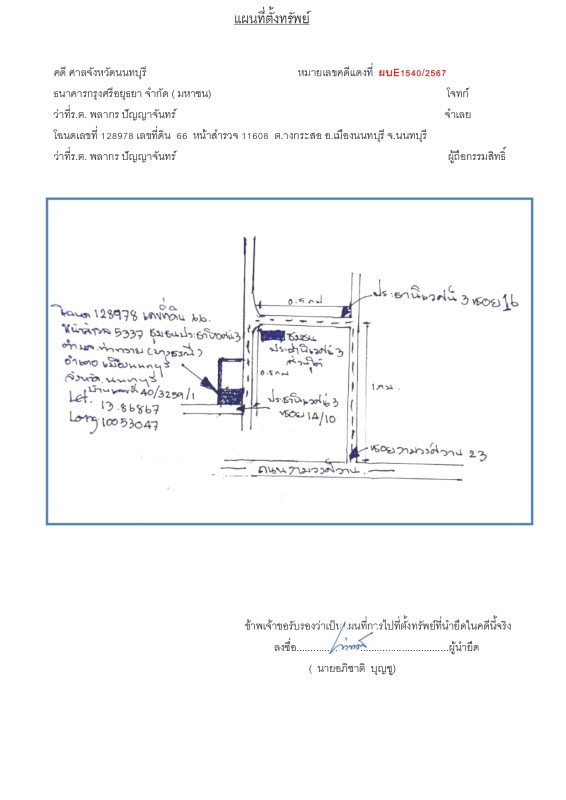 แผนที่ตั้งทรัพย์
คดี ศาลจังหวัดนนทบุรี หมายเลขคดีแดงที่ ผบE1540/2567
ธนาคารกรุงศรีอยุธยา จำกัด ( มหาชน) โจทก์
ว่าที่ร.ต. พลากร ปัญญาจันทร์ จำเลย
โฉนดเลขที่ 128978 เลขที่ดิน 66 หน้าสำรวจ 11608 ต.บางกระสอ อ.เมืองนนทบุรี จ.นนทบุรี
ว่าที่ร.ต. พลากร ปัญญาจันทร์ ผู้ถือกรรมสิทธิ์
0.5 กม
ประชานิเวศน์ 3 ซอย 16
โฉนด 128978 เลขที่ดิน 66
หน้าสำรวจ 5337 ชุมชนประชานิเวศน์ 3
ตำบล ท่าทราย
อำเภอ เมืองนนทบุรี
จังหวัด นนทบุรี
บ้านเลขที่ 40/3259/1
Lat. 13.86867
Long 10053047
ชุมชน
ประชานิเวศน์ 3
ส่วนใต้
0.5 กม
1 กม.
ประชานิเวศน์ 3
ซอย 14/10
ซอยงามวงศ์วาน 23
ถนนงามวงศ์วาน
ข้าพเจ้าขอรับรองว่าเป็นแผนที่การไปที่ตั้งทรัพย์ที่นำยึดในคดีนี้จริง
ลงชื่อ ผู้นำยึด
( นายอภิชาติ บุญชู)